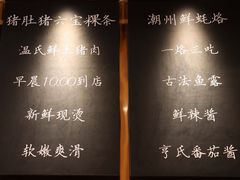 猪肚猪六宝粿条
温氏鲜土猪肉
早晨10:00到店
新鲜现烫
软嫩爽滑
潮州鲜蚝烙
一烙三吃
古法鱼露
鲜辣酱
亨氏番茄酱